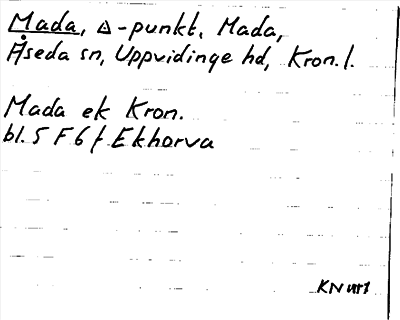 Mada, △-punkt, Mada,
Åseda sn, Uppvidinge hd, Kron. l.
Mada ek Kron.
bl. 5 F 6 f Ekhorva